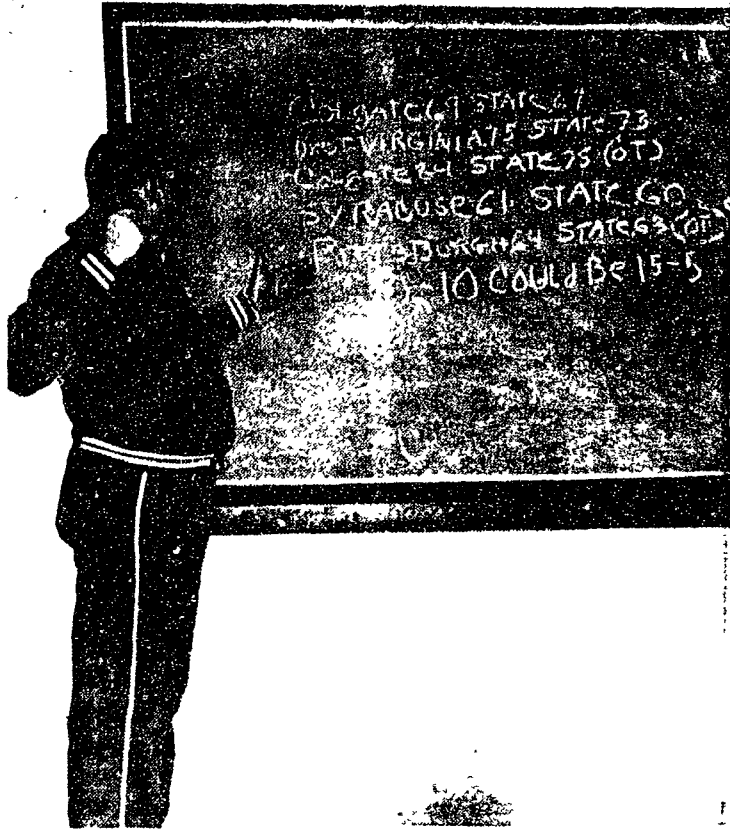 Colgate 69 STATE 67
West VIRGINIA 75 STATE 73
Colgate 84 STATE 75 (OT)
SYRACUSE 61 STATE 60
PittsBurgh 64 STATE 63 (OT)
-10 COULD Be 15-5